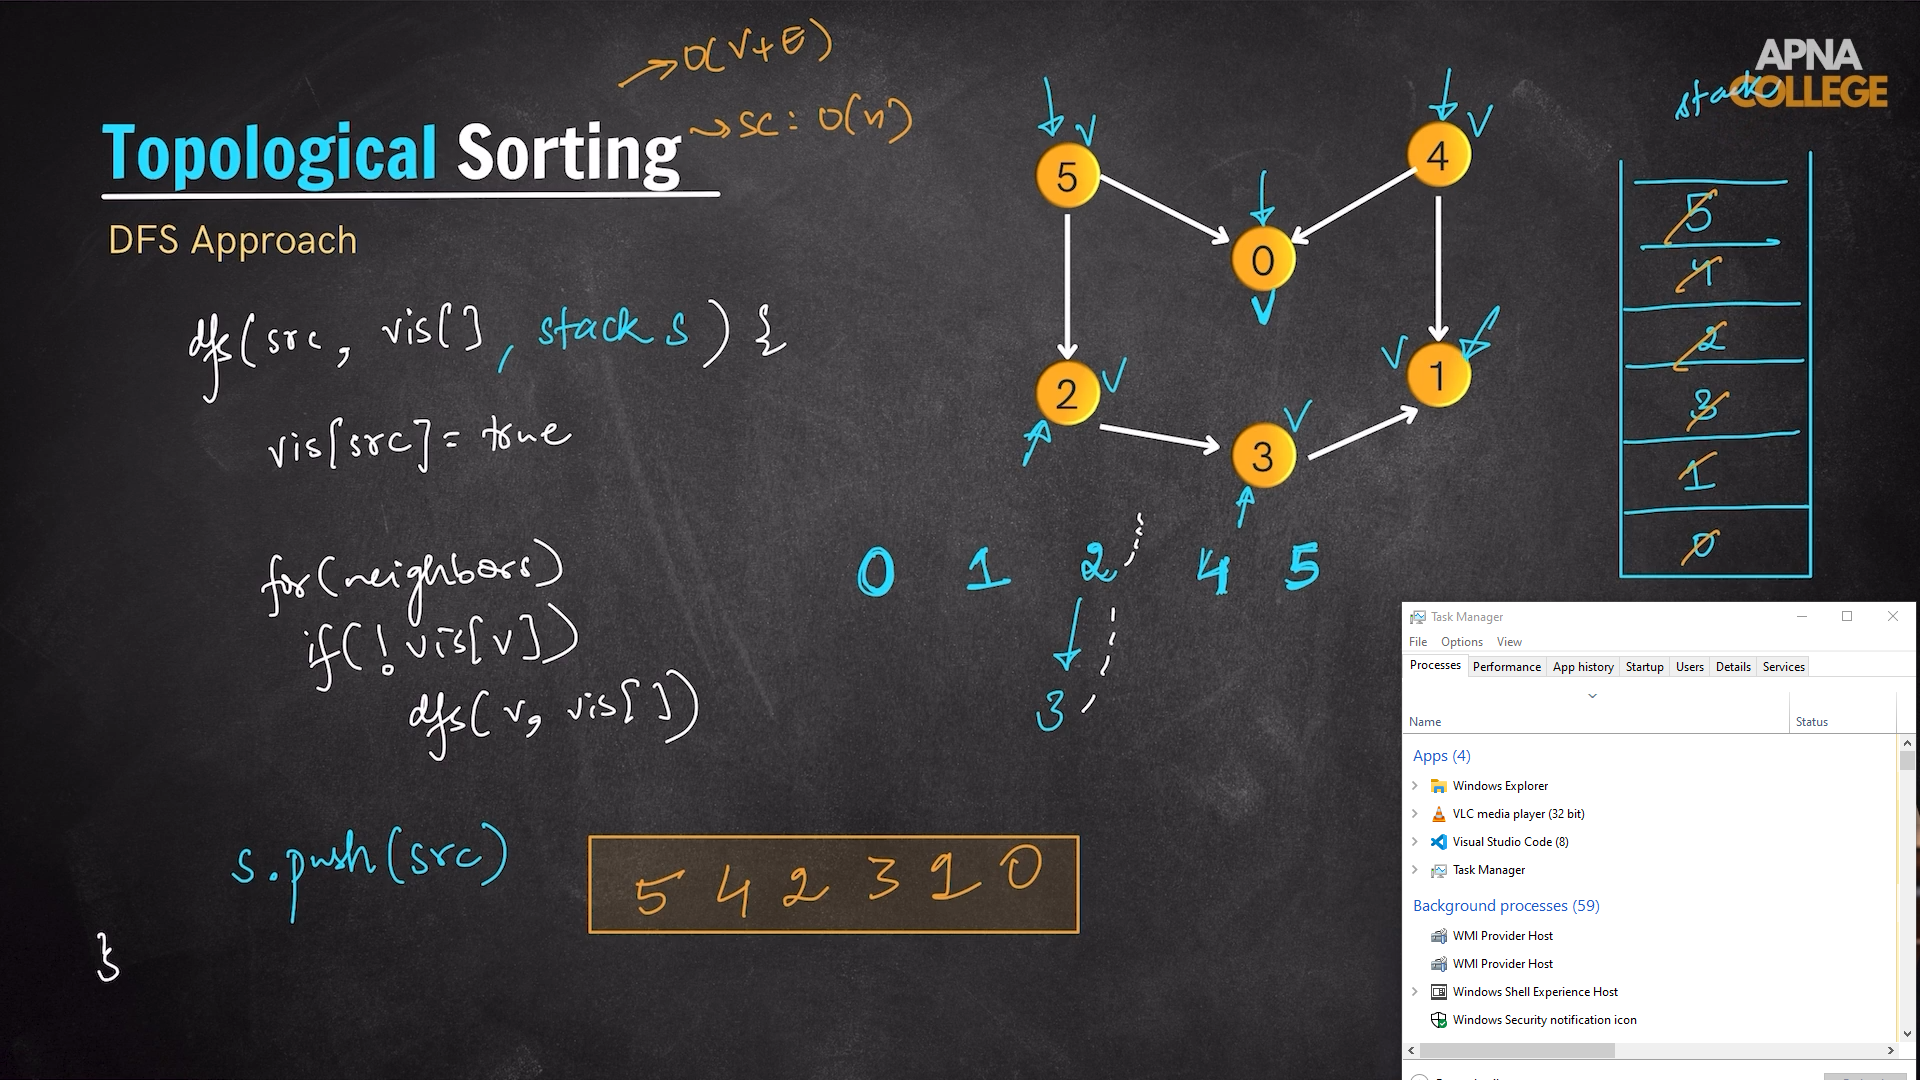 → O(V+E)
→ SC: O(n)
APNA
COLLEGE
stack
Topological Sorting
DFS Approach
dfs(src, vis[], stack s) {
vis[src] = true
for(neighbors)
if(!vis[v])
dfs(v, vis[])
s.push(src)
}
5 4 2 3 1 0
5
4
0
2
1
3
0 1 2 4 5
3
5
4
2
3
1
0
Task Manager
File Options View
Processes Performance App history Startup Users Details Services
Name Status
Apps (4)
Windows Explorer
VLC media player (32 bit)
Visual Studio Code (8)
Task Manager
Background processes (59)
WMI Provider Host
WMI Provider Host
Windows Shell Experience Host
Windows Security notification icon